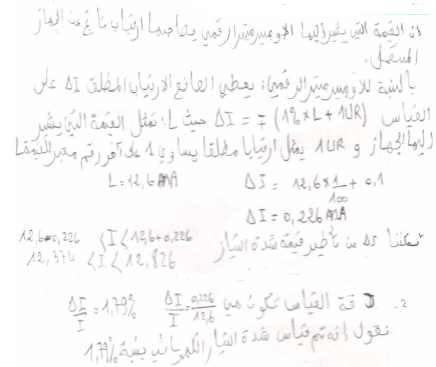 ان القيمة التي يشير إليها الأومبيرمتر الرقمي يصاحبها ارتياب ناتج عن الجهاز
المستعمل.
بالنسبة للأومبيرمتر الرقمي: يعطي الصانع الارتياب المطلق ΔI على
القياس ΔI = ∓ (1% × L + 1UR) حيث L: تمثل القيمة التي يشير
إليها الجهاز و 1UR يمثل ارتيابا مطلقا يساوي 1 على آخر رقم معبر للقيمة L
L = 12,6 mA ΔI = 12,6 × 1/100 + 0,1
ΔI = 0,226 mA
تمكننا ΔI من تأطير قيمة شدة التيار 12,6-0,226 < I < 12,6+0,226
12,374 < I < 12,826
2- دقة القياس تكون هي ΔI/I = 0,226/12,6 ΔI/I = 1,79%
نقول انه تم قياس شدة التيار الكهربائي بنسبة 1,79%